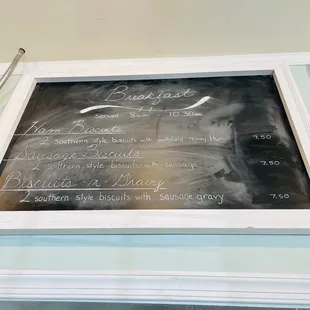 Breakfast
Served 8am 10 30am
Ham Biscuits
2 southern style biscuits with Honey Ham 7.50
Sausage Biscuits
2 southern style biscuits with sausage 7.50
Biscuits-n-Gravy
2 southern style biscuits with sausage gravy 7.50